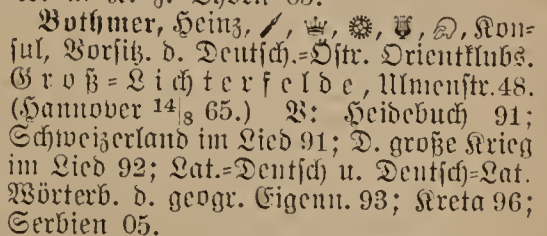 Bothmer, Heinz, Kon=
sul, Vorsitz. d. Deutsch.=Östr. Orientklubs.
Groß=Lichterfelde, Ulmenstr. 48.
(Hannover 14|8 65.) V: Heidebuch 91;
Schweizerland im Lied 91; D. große Krieg
im Lied 92; Lat.=Deutsch u. Deutsch=Lat.
Wörterb. d. geogr. Eigenn. 93; Kreta 96;
Serbien 05.